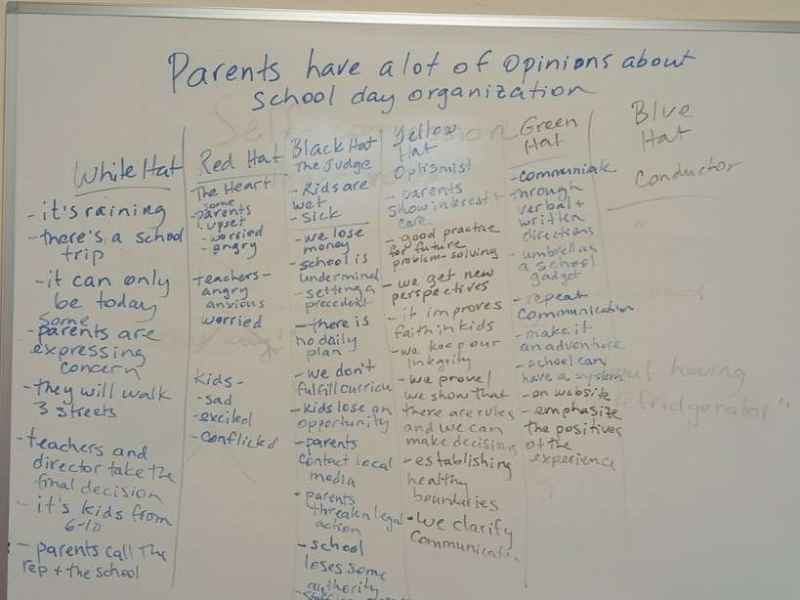 Parents have a lot of opinions about
school day organization
White Hat
- it's raining
- there's a school
trip
- it can only
be today
some
- parents are
expressing
concern
- they will walk
3 streets
- teachers and
director take the
final decision
- it's kids from
6-10
- parents call the
rep + the school
Red Hat
The Heart
some
- Parents
upset
- worried
- angry
Teachers -
angry
anxious
worried
Kids -
- sad
- excited
- conflicted
Black Hat
The Judge
- Kids are
wet
- sick
- we lose
money
- school is
undermined
- setting a
precedent
- there is
no daily
plan
- we don't
fulfill curricu
- kids lose an
opportunity
- parents
contact local
media
- parents
threaten legal
action
- school
loses some
authority
Yellow
Hat
Optismist
- parents
show interest +
care
- good practise
for future
problem-solving
- we get new
perspectives
- it improves
faith in kids
- we keep our
integrity
- we prove/
we show that
there are rules
and we can
make decision
- establishing
healthy
boundaries
- we clarify
communicati
Green
Hat
- communiak
through
verbal +
written
directions
- umbrella as
a school
gadget
- repeat
communication
- make it
an adventure
- school can
have a system
- on website
- emphasize
the positives
of the
experience
Blue
Hat
Conductor
having